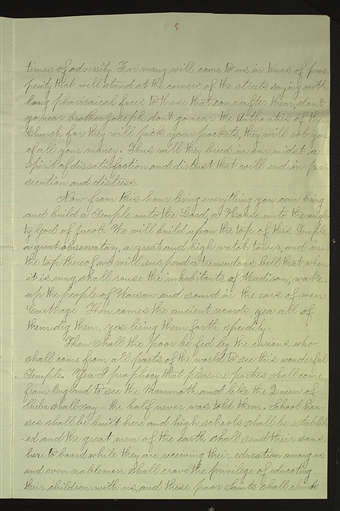 5
times of adversity. For many will come to us in times of pros-
perity that will stand at the corners of the streets saying with
long pharisaical faces to those that come after them, don't
go near brother Joseph, don't go near the authorities of the
Church for they will pick your pockets, they will rob you
of all your money. Thus will they breed in our midst a
spirit of dissatisfaction and distrust that will end in per-
secution and distress.
Now from this hour bring everything you can bring
and build a Temple unto the Lord, a House unto the migh-
ty God of Jacob. We will build upon the top of this Temple
a great observatory, a great and high watch tower, and in
the top thereof we will suspend a tremendous bell that when
it is rung shall rouse the inhabitants of Madison, wake
up the people of Warsaw and sound in the ears of men
Carthage. Then comes the ancient records yea all of
them dig them, yes bring them forth speedily.
Then shall the poor be fed by the curious who
shall come from all parts of the world to see this wonderful
Temple. Yea I prophesy that pleasure parties shall come
from England to see the Mammoth and like the Queen of
Sheba shall say the half never was told them. School hou-
ses shall be built here and high schools shall be establish-
-ed and the great men of the earth shall send their sons
here to board while they are receiving their education among us
and even noblemen shall crave the privilege of educating
their children with us, and these poor Saints shall chink